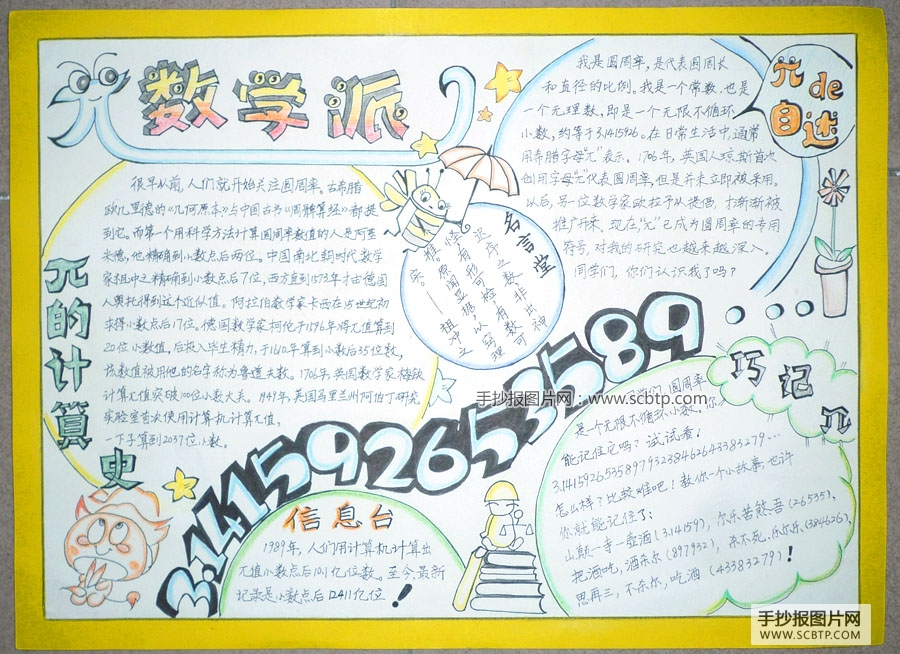 数学派
很早以前,人们就开始关注圆周率。古希腊
欧几里德的《几何原本》与中国古书《周髀算经》都提
到它。而第一个用科学方法计算圆周率数值的人是阿基
米德,他精确到小数点后两位。中国南北朝时代数学
家祖冲之精确到小数点后7位,西方直到1573年才由德国
人奥托得到这个近似值。阿拉伯数学家卡西在15世纪初
求得小数点后17位。德国数学家柯伦于1596年将π值算到
20位小数值,后投入毕生精力,于1610年算到小数后35位数,
该数值被用他的名字称为鲁道夫数。1706年,英国数学家梅钦
计算π值突破100位小数大关。1949年,美国马里兰州阿伯丁研究
实验室首次使用计算机计算π值,
一下子算到2037位小数。
π的计算史
我是圆周率,是代表圆周长
和直径的比例。我是一个常数,也是
一个无理数,即是一个无限不循环
小数,约等于3.1415926。在日常生活中,通常
用希腊字母"π"表示。1706年,英国人琼斯首次
创用字母"π"代表圆周率,但是并未立即被采用。
以后,另一位数学家欧拉予以提倡,才渐渐被
推广开来。现在,"π"已成为圆周率的专用
符号,对我的研究也越来越深入。
同学们,你们认识我了吗?
π de
自述
名言堂
迟序立数,非出神
怪,有形可检,有数可
推。
——祖冲之
3.141592653589...
手抄报图片网:www.scbtp.com
巧记π
同学们,圆周率
是个无限不循环小数,你
能记住它吗?试试看!
3.14159265358979323846264338 3279…
怎么样?比较难吧!教你一个小故事,也许
你就能记住了:
山颠一寺一壶酒(3.14159),尔乐苦煞吾(26535),
把酒吃,酒杀尔(897932),杀不死,乐尔乐(384626),
思再三,不杀尔,吃酒(43383279)!
信息台
1989年,人们用计算机计算出
π值小数点后10.1亿位数,至今,最新
记录是小数点后12411亿位!
手抄报图片网
WWW.SCBTP.COM